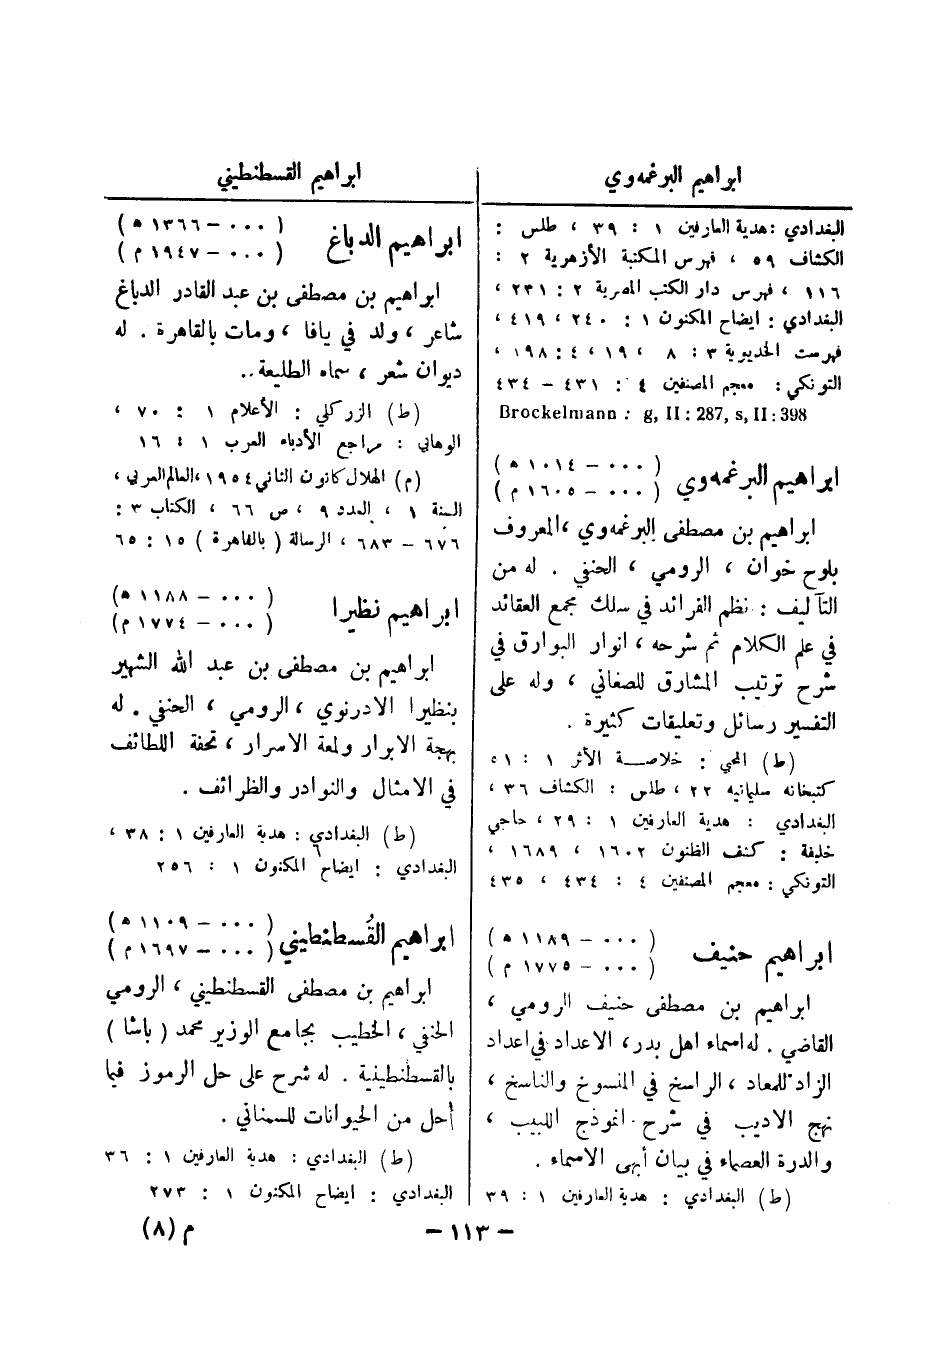 ابراهيم البرغمه‌وي
البغدادي : هدية العارفين ١ : ٣٩ ، طلس :
الكشاف ٥٩ ، فهرس المكتبة الأزهرية ٢ :
١١٦ ، فهرس دار الكتب المصرية ٢ : ٢٣١ ،
البغدادي : ايضاح المكنون ١ : ٢٤٠ ، ٤١٩ ،
فهرست الخديوية ٣ : ٨ ، ١٩ ، ٤ : ١٩٨ ،
التونكي : معجم المصنفين ٤ : ٤٣١ – ٤٣٤
Brockelmann : g, II : 287, s, II : 398
ابراهيم البرغمه‌وي
( ٠٠٠ – ١٠١٤ ه )
( ٠٠٠ – ١٦٠٥ م )
ابراهيم بن مصطفى البرغمه‌وي ، المعروف
بلوح خوان ، الرومي ، الحنفي . له من
التآليف : نظم الفرائد في سلك مجمع العقائد
في علم الكلام ثم شرحه ، انوار البوارق في
شرح ترتيب المشارق للصغاني ، وله على
التفسير رسائل وتعليقات كثيرة .
(ط) المحبي : خلاصة الأثر ١ : ٥١
كتبخانه سليمانيه ٢٢ ، طلس : الكشاف ٣٦ ،
البغدادي : هدية العارفين ١ : ٢٩ ، حاجي
خليفة : كشف الظنون ١٦٠٢ ، ١٦٨٩ ،
التونكي : معجم المصنفين ٤ : ٤٣٤ ، ٤٣٥
ابراهيم حنيف
( ٠٠٠ – ١١٨٩ ه )
( ٠٠٠ – ١٧٧٥ م )
ابراهيم بن مصطفى حنيف الرومي ،
القاضي . له اسماء اهل بدر ، الاعداد في اعداد
الزاد للمعاد ، الراسخ في المنسوخ والناسخ ،
نهج الاديب في شرح انموذج اللبيب ،
والدرة العصماء في بيان أبهى الاسماء .
(ط) البغدادي : هدية العارفين ١ : ٣٩
ابراهيم القسطنطيني
ابراهيم الدباغ
( ٠٠٠ – ١٣٦٦ ه )
( ٠٠٠ – ١٩٤٧ م )
ابراهيم بن مصطفى بن عبد القادر الدباغ
شاعر ، ولد في يافا ، ومات بالقاهرة . له
ديوان شعر ، سماه الطليعة ..
(ط) الزركلي : الأعلام ١ : ٧٠ ،
الوهابي : مراجع الأدباء العرب ١ : ١٦
(م) الهلال كانون الثاني ١٩٥٤ ، العالم العربي ،
السنة ١ ، العدد ٩ ، ص ٦٦ ، الكتاب ٣ :
٦٧٦ – ٦٨٣ ، الرسالة ( بالقاهرة ) ١٥ : ٦٥
ابراهيم نظيرا
( ٠٠٠ – ١١٨٨ ه )
( ٠٠٠ – ١٧٧٤ م )
ابراهيم بن مصطفى بن عبد الله الشهير
بنظيرا الادرنوي ، الرومي ، الحنفي . له
بهجة الابرار ولمعة الاسرار ، تحفة اللطائف
في الامثال والنوادر والظرائف .
(ط) البغدادي : هدية العارفين ١ : ٣٨ ،
البغدادي : ايضاح المكنون ١ : ٢٥٦
ابراهيم القُسطنطيني
( ٠٠٠ – ١١٠٩ ه )
( ٠٠٠ – ١٦٩٧ م )
ابراهيم بن مصطفى القسطنطيني ، الرومي
الحنفي ، الخطيب بجامع الوزير محمد ( باشا )
بالقسطنطينية . له شرح على حل الرموز فيما
أحل من الحيوانات للسمناني .
(ط) البغدادي : هدية العارفين ١ : ٣٦
البغدادي : ايضاح المكنون ١ : ٢٧٣
– ١١٣ –
م (٨)